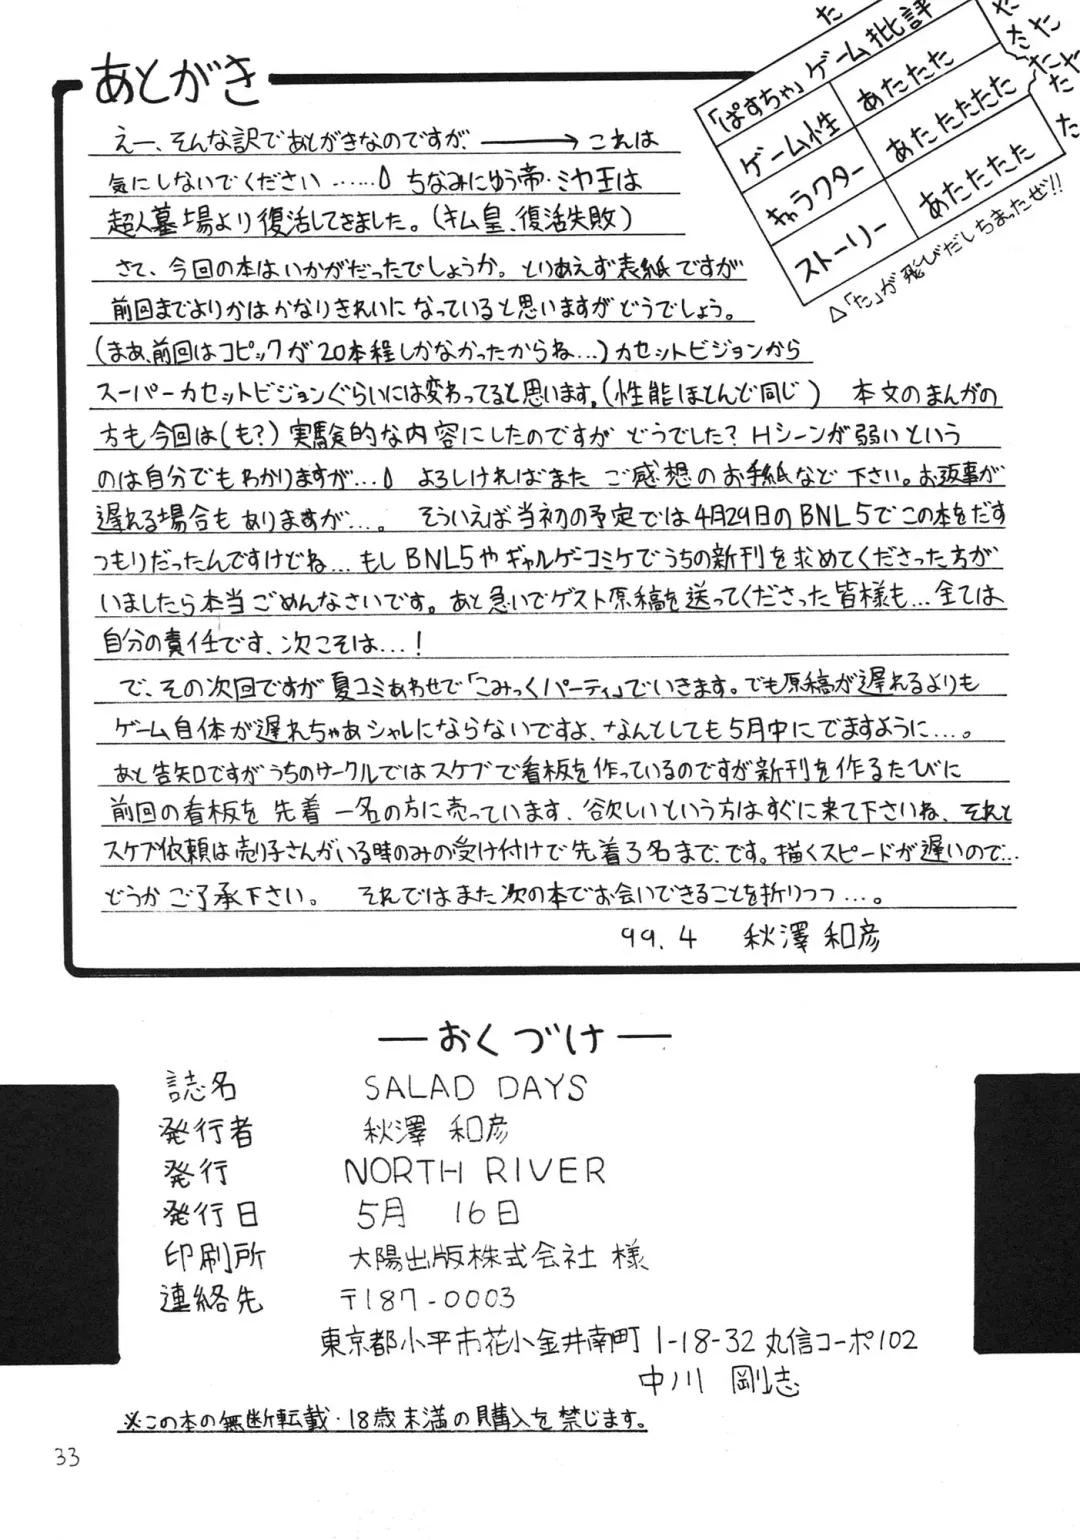 あとがき
えー、そんな訳であとがきなのですが、 ――→ これは
気にしないでください……。 ちなみにゆう帝・ミヤ王は
超人墓場より復活してきました。(キム皇、復活失敗)
さて、今回の本はいかがだったでしょうか。とりあえず表紙ですが
前回までよりかはかなりきれいになっていると思いますがどうでしょう。
(まあ、前回はコピックが20本程しかなかったからね…)カセットビジョンから
スーパーカセットビジョンぐらいには変わってると思います。(性能ほとんど同じ) 本文のまんがの
方も今回は(も?)実験的な内容にしたのですが どうでした?Hシーンが弱いという
のは自分でもわかりますが…。 よろしければまた ご感想のお手紙など下さい。お返事が
遅れる場合も ありますが…。 そういえば当初の予定では4月29日のBNL5でこの本をだす
つもりだったんですけどね…もしBNL5やギャルゲーコミケでうちの新刊を求めてくださった方が
いましたら本当ごめんなさいです。あと急いでゲスト原稿を送ってくださった皆様も…全ては
自分の責任です、次こそは…!
で、その次回ですが夏コミあわせで「こみっくパーティ」でいきます。でも原稿が遅れるよりも
ゲーム自体が遅れちゃあシャレにならないですよ、なんとしても5月中にでますように…。
あと告知ですがうちのサークルではスケブで看板を作っているのですが新刊を作るたびに
前回の看板を 先着 一名の方に売っています、欲しいという方はすぐに来て下さいね、それと
スケブ依頼は売り子さんがいる時のみの受け付けで先着3名まで、です。描くスピードが遅いので…
どうかご了承下さい。 それではまた次の本でお会いできることを折りつつ…。
99.4 秋澤 和彦
「ぱすちゃ」ゲーム批評
ゲーム性 あたたた
キャラクター あたたたたた
ストーリー あたたたた
た
た
たた
たた
たた
た
△「た」が飛びだしちまったぜ!!
―おくづけ―
誌名 SALAD DAYS
発行者 秋澤 和彦
発行 NORTH RIVER
発行日 5月 16日
印刷所 大陽出版株式会社 様
連絡先 〒187-0003
東京都小平市花小金井南町 1-18-32 丸信コーポ102
中川 剛志
※この本の無断転載・18歳未満の購入を禁じます。
33